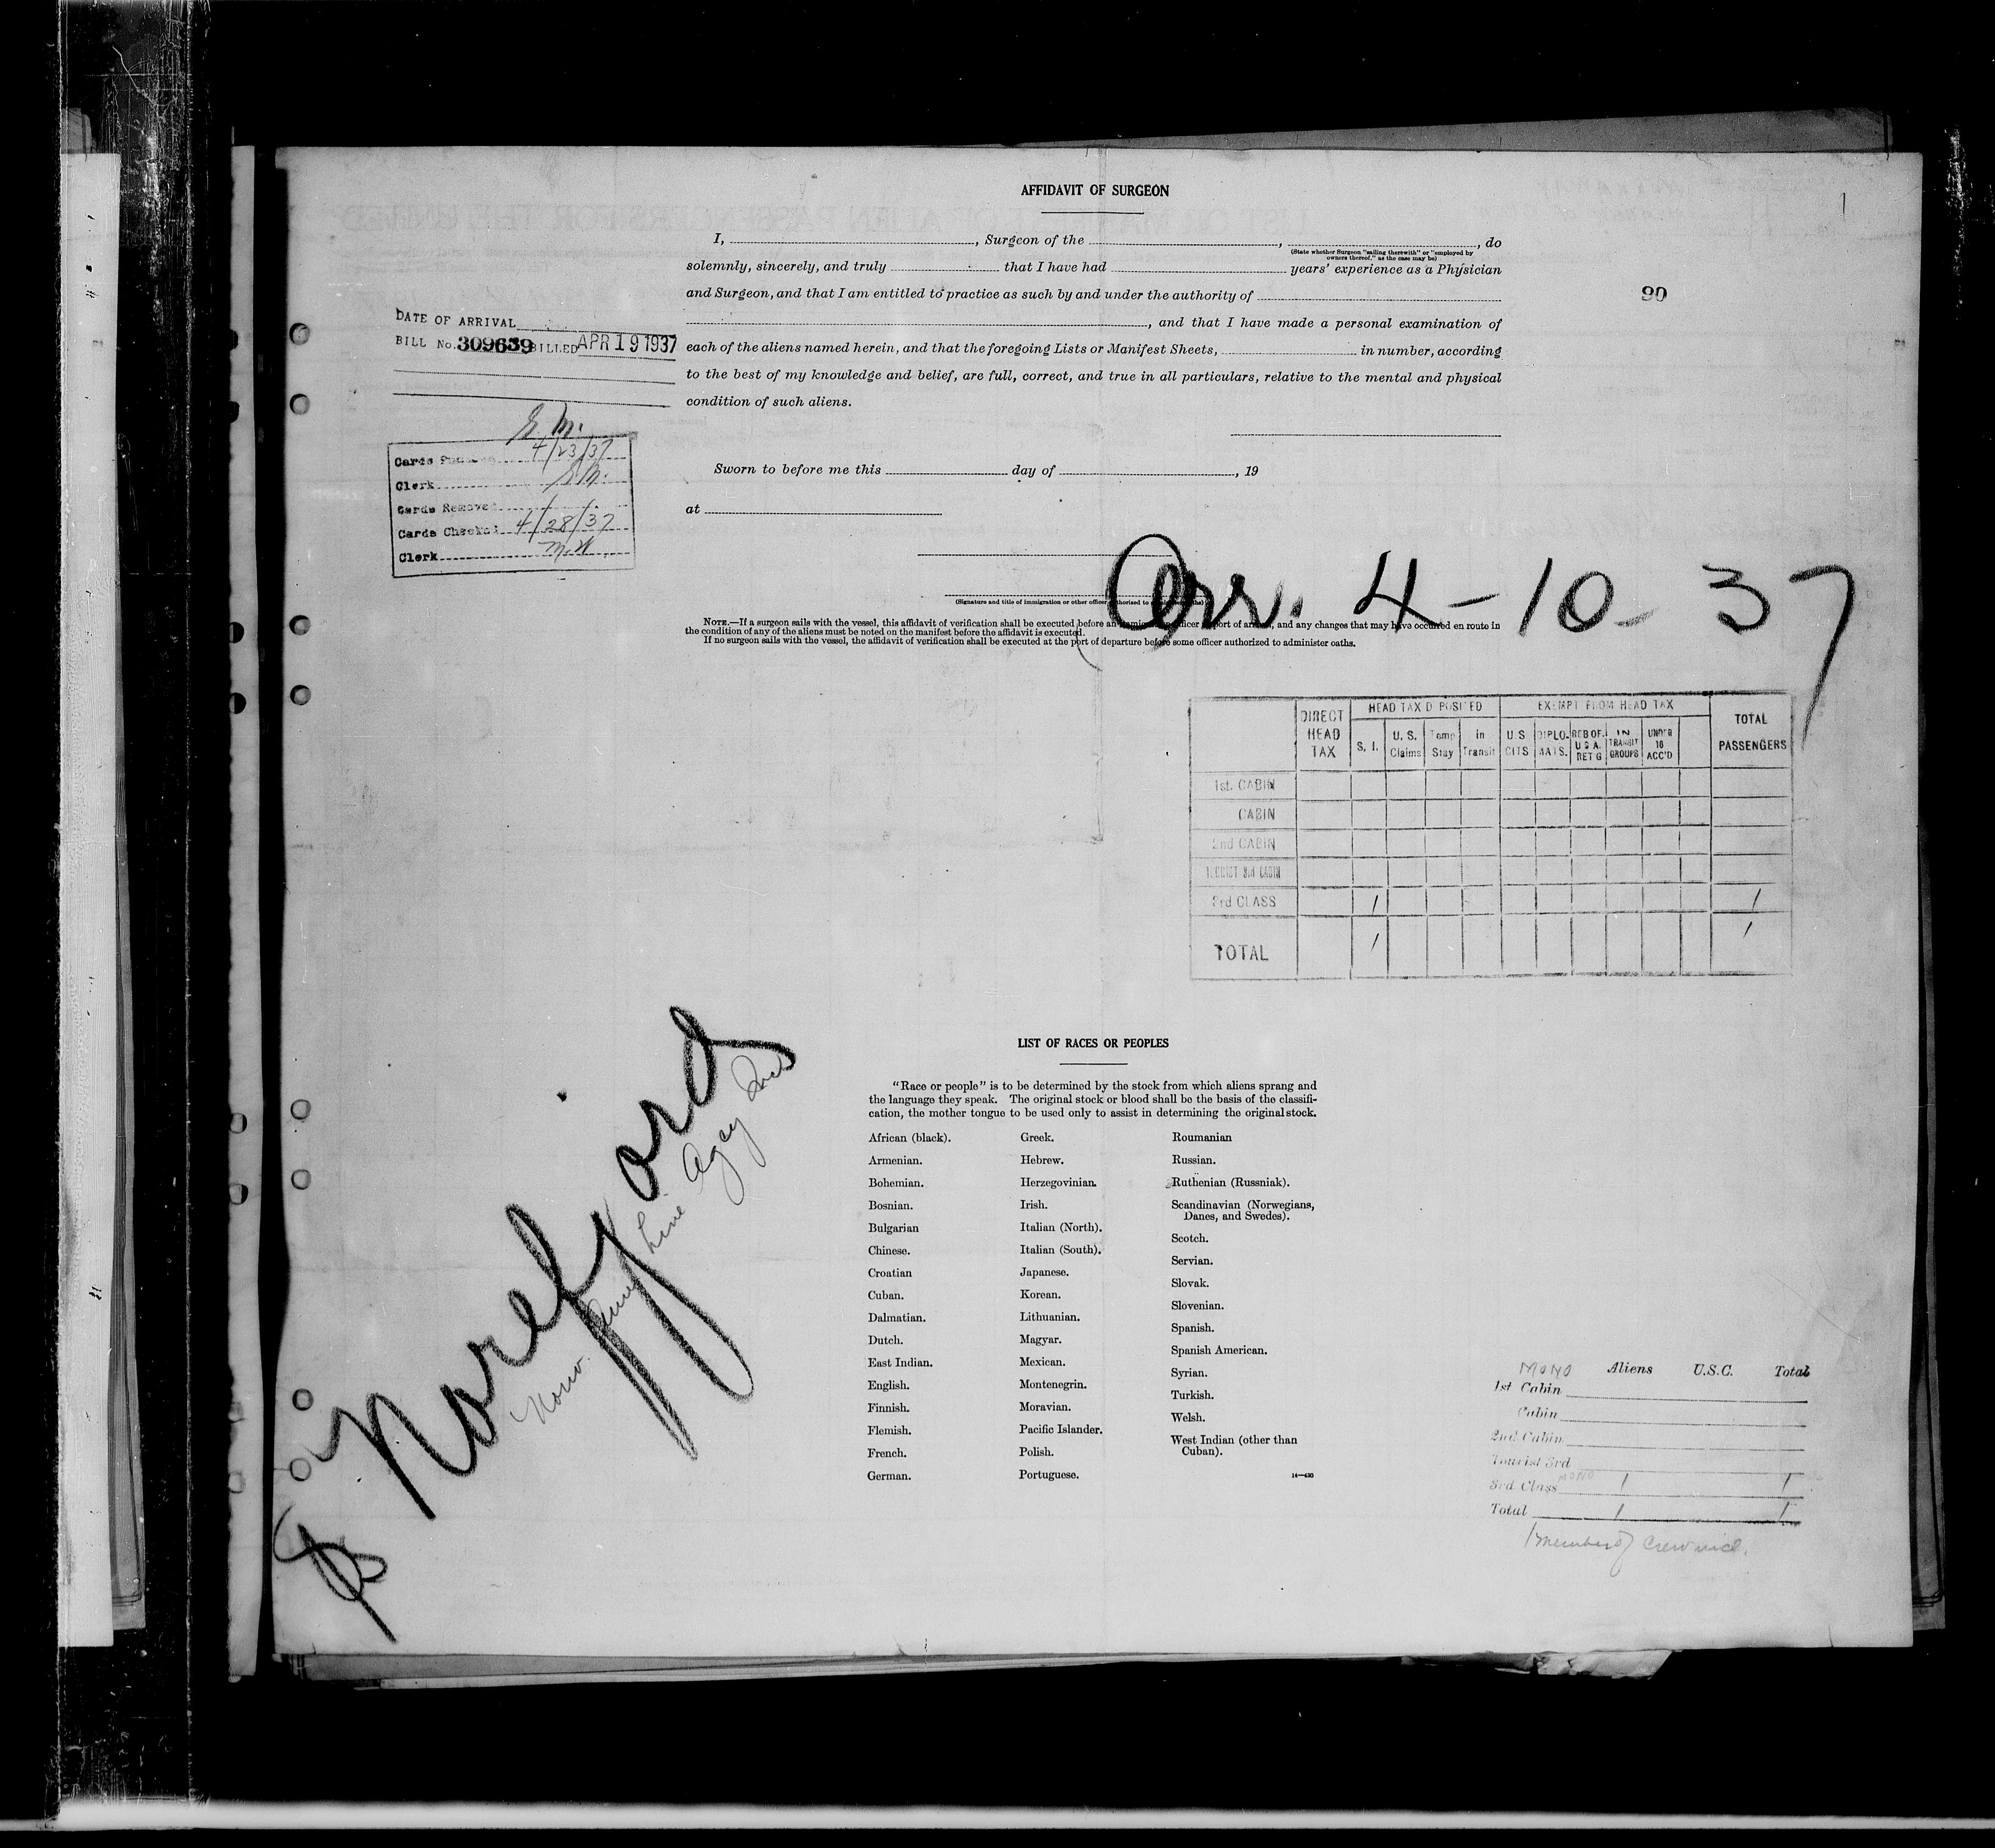 AFFIDAVIT OF SURGEON
I, , Surgeon of the , , do
(State whether Surgeon "sailing therewith" or "employed by
owners thereof," as the case may be)
solemnly, sincerely, and truly that I have had years' experience as a Physician
and Surgeon, and that I am entitled to practice as such by and under the authority of
, and that I have made a personal examination of
each of the aliens named herein, and that the foregoing Lists or Manifest Sheets, in number, according
to the best of my knowledge and belief, are full, correct, and true in all particulars, relative to the mental and physical
condition of such aliens.
90
DATE OF ARRIVAL
BILL No. 309639 BILLED APR 19 1937
Cards 4/23/37
Clerk
Cards Removed
Cards Checked 4/28/37
Clerk
Sworn to before me this day of , 19
at
Arr. 4-10-37
(Signature and title of immigration or other officer authorized to
NOTE.—If a surgeon sails with the vessel, this affidavit of verification shall be executed before an officer port of , and any changes that may have occurred en route in
the condition of any of the aliens must be noted on the manifest before the affidavit is executed.
If no surgeon sails with the vessel, the affidavit of verification shall be executed at the port of departure before some officer authorized to administer oaths.
DIRECT HEAD TAX HEAD TAX D POSITED EXEMPT FROM HEAD TAX TOTAL PASSENGERS
S. I. U. S. Claims Temp Stay in Transit U S CITS DIPLO- MATS. RES OF. U S A. RET G IN TRANSIT GROUPS UNDER 16 ACC'D
1st. CABIN
CABIN
2nd CABIN
TOURIST 3rd CABIN
3rd CLASS 1 1
TOTAL 1 1
LIST OF RACES OR PEOPLES
"Race or people" is to be determined by the stock from which aliens sprang and
the language they speak. The original stock or blood shall be the basis of the classifi-
cation, the mother tongue to be used only to assist in determining the original stock.
African (black).
Armenian.
Bohemian.
Bosnian.
Bulgarian
Chinese.
Croatian
Cuban.
Dalmatian.
Dutch.
East Indian.
English.
Finnish.
Flemish.
French.
German.
Greek.
Hebrew.
Herzegovinian.
Irish.
Italian (North).
Italian (South).
Japanese.
Korean.
Lithuanian.
Magyar.
Mexican.
Montenegrin.
Moravian.
Pacific Islander.
Polish.
Portuguese.
Roumanian
Russian.
Ruthenian (Russniak).
Scandinavian (Norwegians,
Danes, and Swedes).
Scotch.
Servian.
Slovak.
Slovenian.
Spanish.
Spanish American.
Syrian.
Turkish.
Welsh.
West Indian (other than
Cuban).
14—430
Norefjord
Norw. Amer Line Agcy Inc
MONO Aliens U.S.C. Total
1st Cabin
Cabin
2nd Cabin
Tourist 3rd
3rd Class MONO 1 1
Total 1 1
1 member of crew